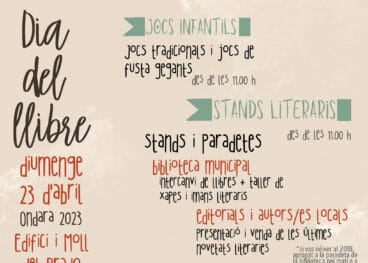 Dia
del
llibre
diumenge
23 d'abril
ONDARA 2023
Edifici i Moll
JOCS INFANTILS
Jocs tradicionals i jocs de
fusta gegants
des de les 11.00 h
STANDS LITERARIS
des de les 11.00 h
stands i paradetes
biblioteca municipal
intercanvi de llibres + taller de
xapes i imans literaris
editorials i autors/es locals
presentació i venda de les últimes
novetats literaries
*si vas nàixer al 2018,
apropa't a la paradeta de